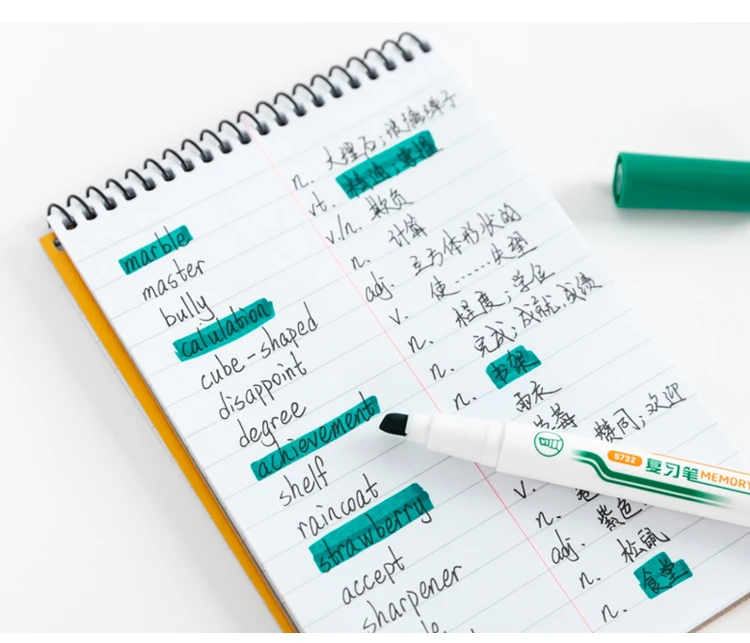 marble n. 大理石;玻璃弹子
master vt. 精通;掌握
bully v./n. 欺负
calulation n. 计算
cube-shaped adj. 立方体形状的
disappoint v. 使……失望
degree n. 程度;学位
achievement n. 完成;成就;成绩
shelf n. 书架
raincoat 雨衣
strawberry
accept 赞同;欢迎
sharpener v.
n.
adj. 紫色
n. 松鼠
n. 食堂
5732 复习笔 MEMORY